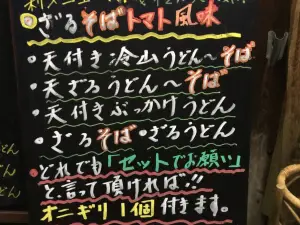 ざるそばトマト風味
・天付き冷山うどん~そば
・天ざるうどん~そば
・天付きぶっかけうどん
・ざるそば・ざるうどん
・どれでも「セットでお願い」
と、言って頂ければ!!
オニギリ1個付きます。